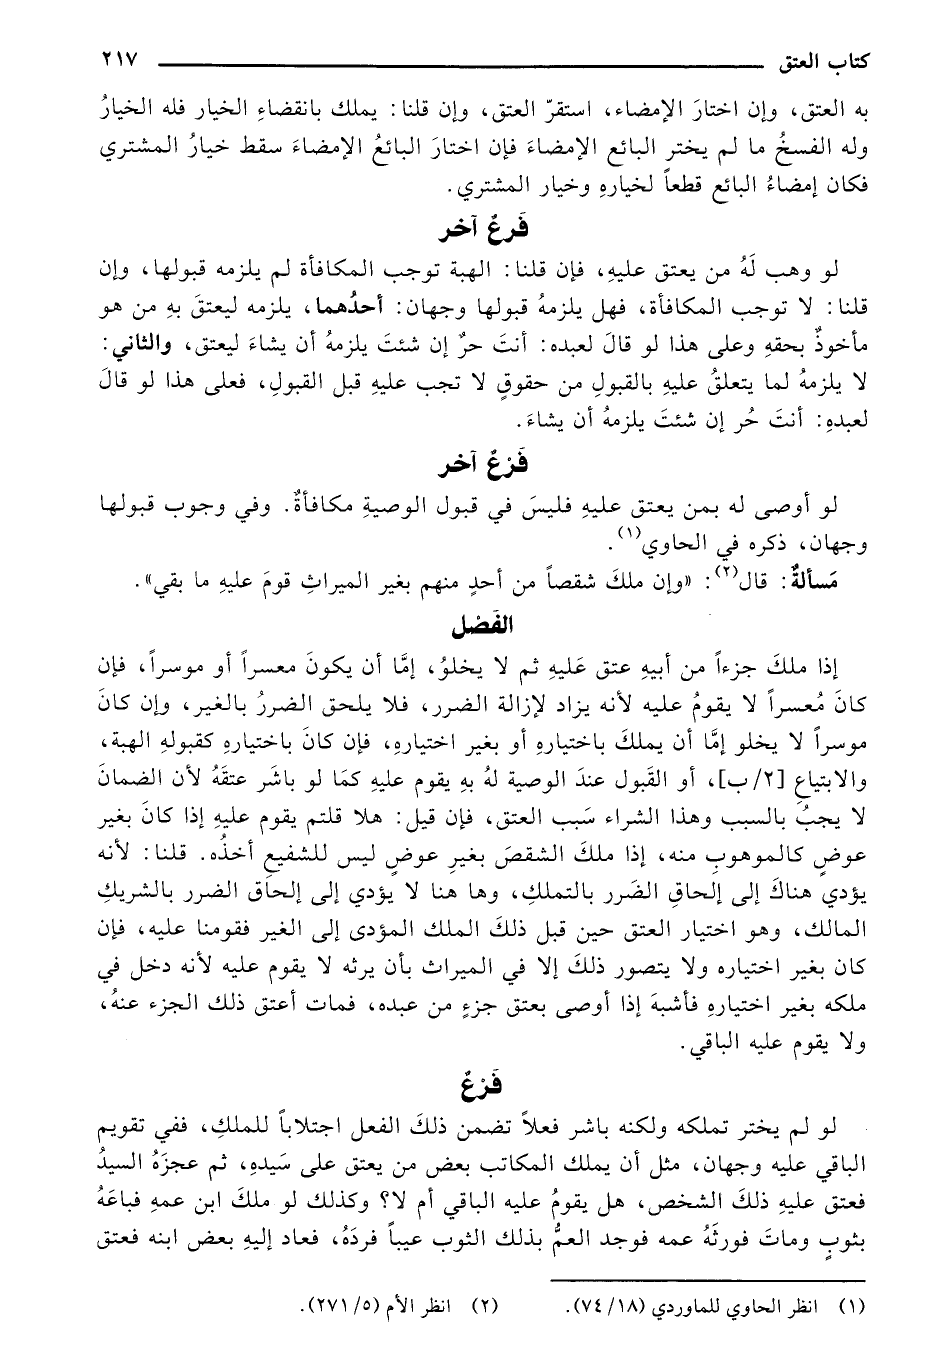 كتاب العتق ٢١٧
به العتق، وإن اختارَ الإمضاء، استقرّ العتق، وإن قلنا: يملك بانقضاءِ الخيار فله الخيارُ
وله الفسخُ ما لم يختر البائع الإمضاءَ فإن اختارَ البائعُ الإمضاءَ سقط خيارُ المشتري
فكان إمضاءُ البائع قطعاً لخيارهِ وخيار المشتري.
فَرعٌ آخر
لو وهب لَهُ من يعتق عليهِ، فإن قلنا: الهبة توجب المكافأة لم يلزمه قبولها، وإن
قلنا: لا توجب المكافأة، فهل يلزمهُ قبولها وجهان: أحدُهما، يلزمه ليعتقَ بهِ من هو
مأخوذٌ بحقهِ وعلى هذا لو قالَ لعبده: أنتَ حرٌ إن شئتَ يلزمهُ أن يشاءَ ليعتق، والثاني:
لا يلزمهُ لما يتعلقُ عليهِ بالقبولِ من حقوقٍ لا تجب عليهِ قبل القبولِ، فعلى هذا لو قالَ
لعبدهِ: أنتَ حُر إن شئتَ يلزمهُ أن يشاءَ.
فَرْعٌ آخر
لو أوصى له بمن يعتق عليهِ فليسَ في قبول الوصيةِ مكافأةٌ. وفي وجوب قبولها
وجهان، ذكره في الحاوي(١).
مَسألةٌ: قال(٢): «وإن ملكَ شقصاً من أحدٍ منهم بغير الميراثِ قومَ عليهِ ما بقي».
الفَصْل
إذا ملكَ جزءاً من أبيهِ عتق عَليهِ ثم لا يخلوُ، إمَّا أن يكونَ معسراً أو موسراً، فإن
كانَ مُعسراً لا يقومُ عليه لأنه يزاد لإزالة الضرر، فلا يلحق الضررُ بالغير، وإن كانَ
موسراً لا يخلو إمَّا أن يملكَ باختيارهِ أو بغير اختيارهِ، فإن كانَ باختيارهِ كقبولهِ الهبة،
والابتياعِ [٢/ب]، أو القَبول عندَ الوصية لهُ بهِ يقوم عليهِ كمَا لو باشَر عتقَهُ لأن الضمانَ
لا يجبُ بالسبب وهذا الشراء سَبب العتق، فإن قيل: هلا قلتم يقوم عليهِ إذا كانَ بغير
عوضٍ كالموهوبِ منه، إذا ملكَ الشقصَ بغيرِ عوضٍ ليس للشفيع أخذُه. قلنا: لأنه
يؤدي هناكَ إلى إلحاقِ الضَرر بالتملكِ، وها هنا لا يؤدي إلى إلحاق الضرر بالشريكِ
المالك، وهو اختيار العتق حين قبل ذلكَ الملك المؤدى إلى الغير فقومنا عليه، فإن
كان بغير اختياره ولا يتصور ذلكَ إلا في الميراث بأن يرثه لا يقوم عليه لأنه دخل في
ملكه بغير اختيارهِ فأشبهَ إذا أوصى بعتق جزءٍ من عبده، فمات أعتق ذلك الجزء عنهُ،
ولا يقوم عليه الباقي.
فَرْعٌ
لو لم يختر تملكه ولكنه باشر فعلاً تضمن ذلكَ الفعل اجتلاباً للملكِ، ففي تقويم
الباقي عليه وجهان، مثل أن يملك المكاتب بعض من يعتق على سَيدهِ، ثم عجزَهُ السيدُ
فعتق عليهِ ذلكَ الشخص، هل يقومُ عليه الباقي أم لا؟ وكذلك لو ملكَ ابن عمهِ فباعَهُ
بثوبٍ وماتَ فورثَهُ عمه فوجد العمُّ بذلك الثوب عيباً فردَهُ، فعاد إليهِ بعض ابنه فعتق
(١) انظر الحاوي للماوردي (١٨/ ٧٤). (٢) انظر الأم (٥/ ٢٧١).